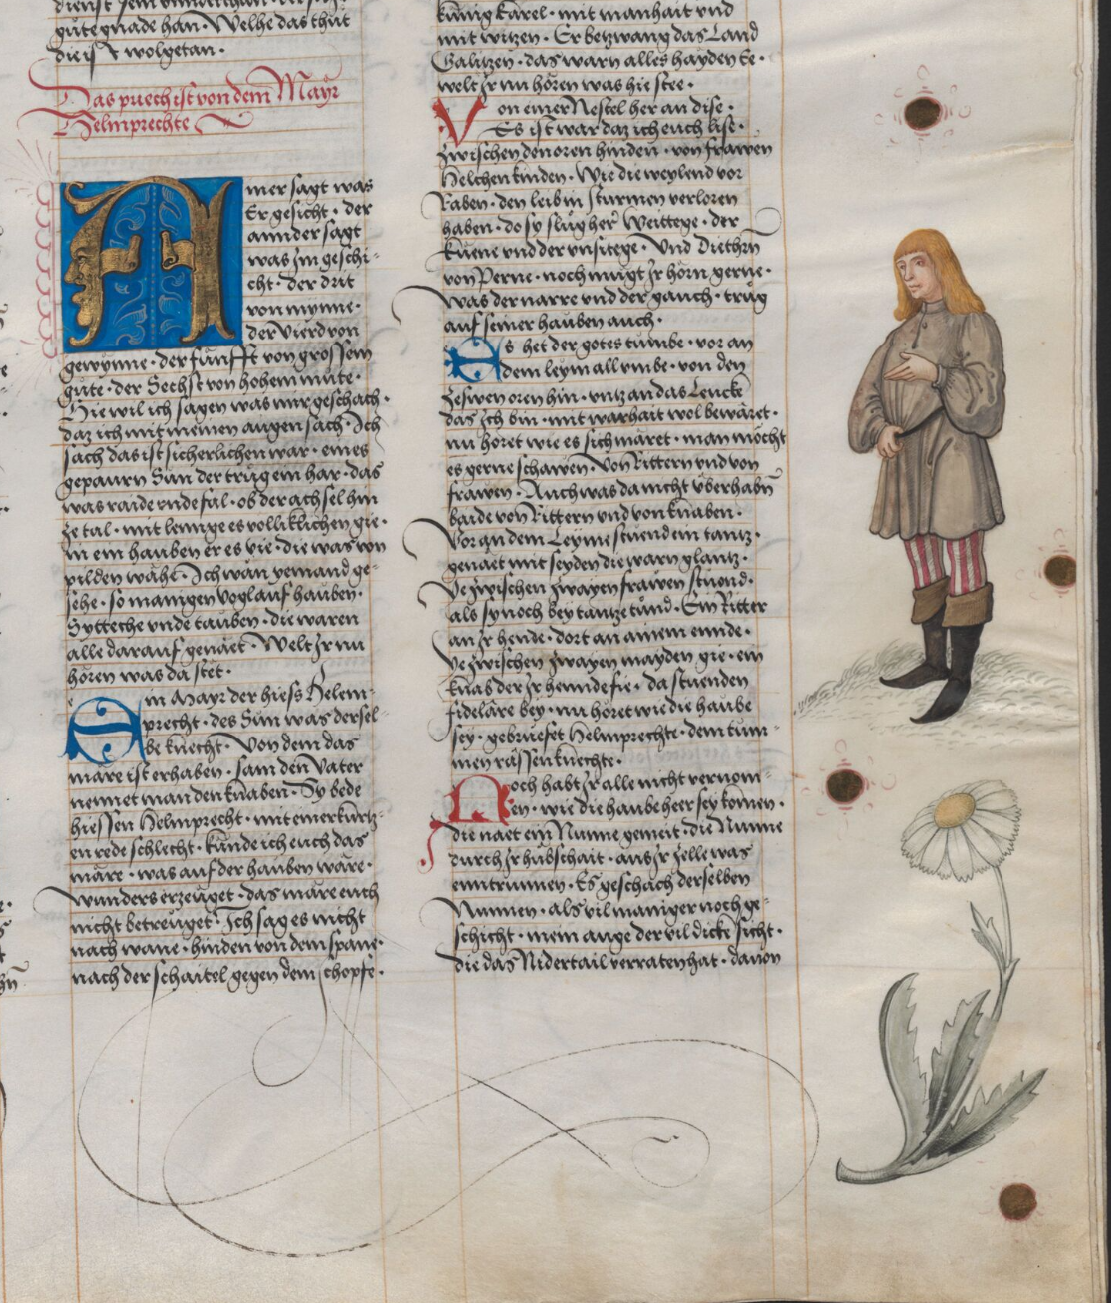 gůte gnade han · Welhe das thůt
die ist wolgetan ·
Das puech ist von dem Mayr
Helmprechte
Ainer sagt was
Er gesicht · der
annder sagt
was im geschi-
cht · der drit
von mynne ·
der Vierd von
gewynne · der fünfft von grossem
gůte · der Sechst von hohem můte ·
Hie wil ich sagen was mir geschach ·
daz ich mit meinen augen sach · Ich
sach das ist sicherlichen war · eines
gepaurn Sun der trůg ein har · das
was raide vnde fal · ob der achsel hin
ze tal · mit lennge es volliklichen gie ·
in ein hauben er es vie · die was von
pilden wähe · Ich wän yemand ge-
sehe · so manigen vogl auf hauben ·
Sytteche vnde tauben · die waren
alle darauf genäet · Welt Ir nu
hören was da stet ·
Ein Mayr der hiess Helem-
precht · des Sun was dersel-
be knecht · Von dem das
märe ist erhaben · sam den Vater
nennet man den knaben · Sy bede
hiessen Helmprecht · mit einer kurtz-
en rede schlecht · künde ich euch das
märe · was auf der hauben wäre ·
wunders erzeuget · das märe euch
nicht betreuget · Ich sag es nicht
nach wane · hinden von dem spane ·
nach der schaitel gegen dem schopfe ·
künig Karel · mit manhait vnd
mit witzen · Er betzwang das Land
Galitzen · das warn alles hayden Ee ·
welt Ir nu hören was hie stee ·
Von einer Nestel her an dise ·
Es ist war daz ich euch lise ·
zwischen den oren hinden · von frawen
Helchen kinden · Wie die weylend vor
Raben · den leib in sturmen verloren
haben · do sy slůg her Weittege · der
küene vnd der vnsitege · Vnd Diethrn
von Perne · noch mügt Ir hörn gerne ·
was der narre vnd der gauch · trůg
auf seiner hauben auch ·
Es het der gotes tumbe · vor an
dem leym all vmbe · von den
zeswen oren hin · vntz an das Lencke
das Ich bin · mit warhait wol bewäret ·
nu höret wie es sich märet · man möcht
es gerne schawen · Von Rittern vnd von
frawen · Auch was da nicht überhabn
baide von Rittern vnd von knaben ·
Vor an dem Leyme stuend ein tantz ·
genäet mit seyden die warn glantz ·
Ye zwischen zwayen frawen stuond ·
als sy noch bey tantze tůnd · Ein Ritter
an Ir hende · dort an ainem ennde ·
Ye zwischen zwayen mayden gie · ein
knab der Ir hennde fie · da stuenden
fideläre bey · nu höret wie die haube
sey · gebruefet Helmprechte · dem tum-
men rässen knechte ·
Noch habt Ir alle nicht vernom-
en · wie die haube heer sey komen ·
die näet ein Nunne gemeit · die Nunne
durch Ir hübschait · aus Ir zelle was
enntrunnen · Es geschach derselben
Nunnen · als vil maniger noch ge-
schicht · mein auge der vil dicke sicht ·
die das Nidertail verraten hat · dauon